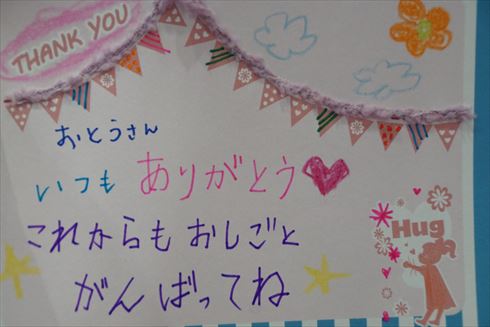 THANK YOU
おとうさん
いつも ありがとう
これからも おしごと
がんばってね
Hug